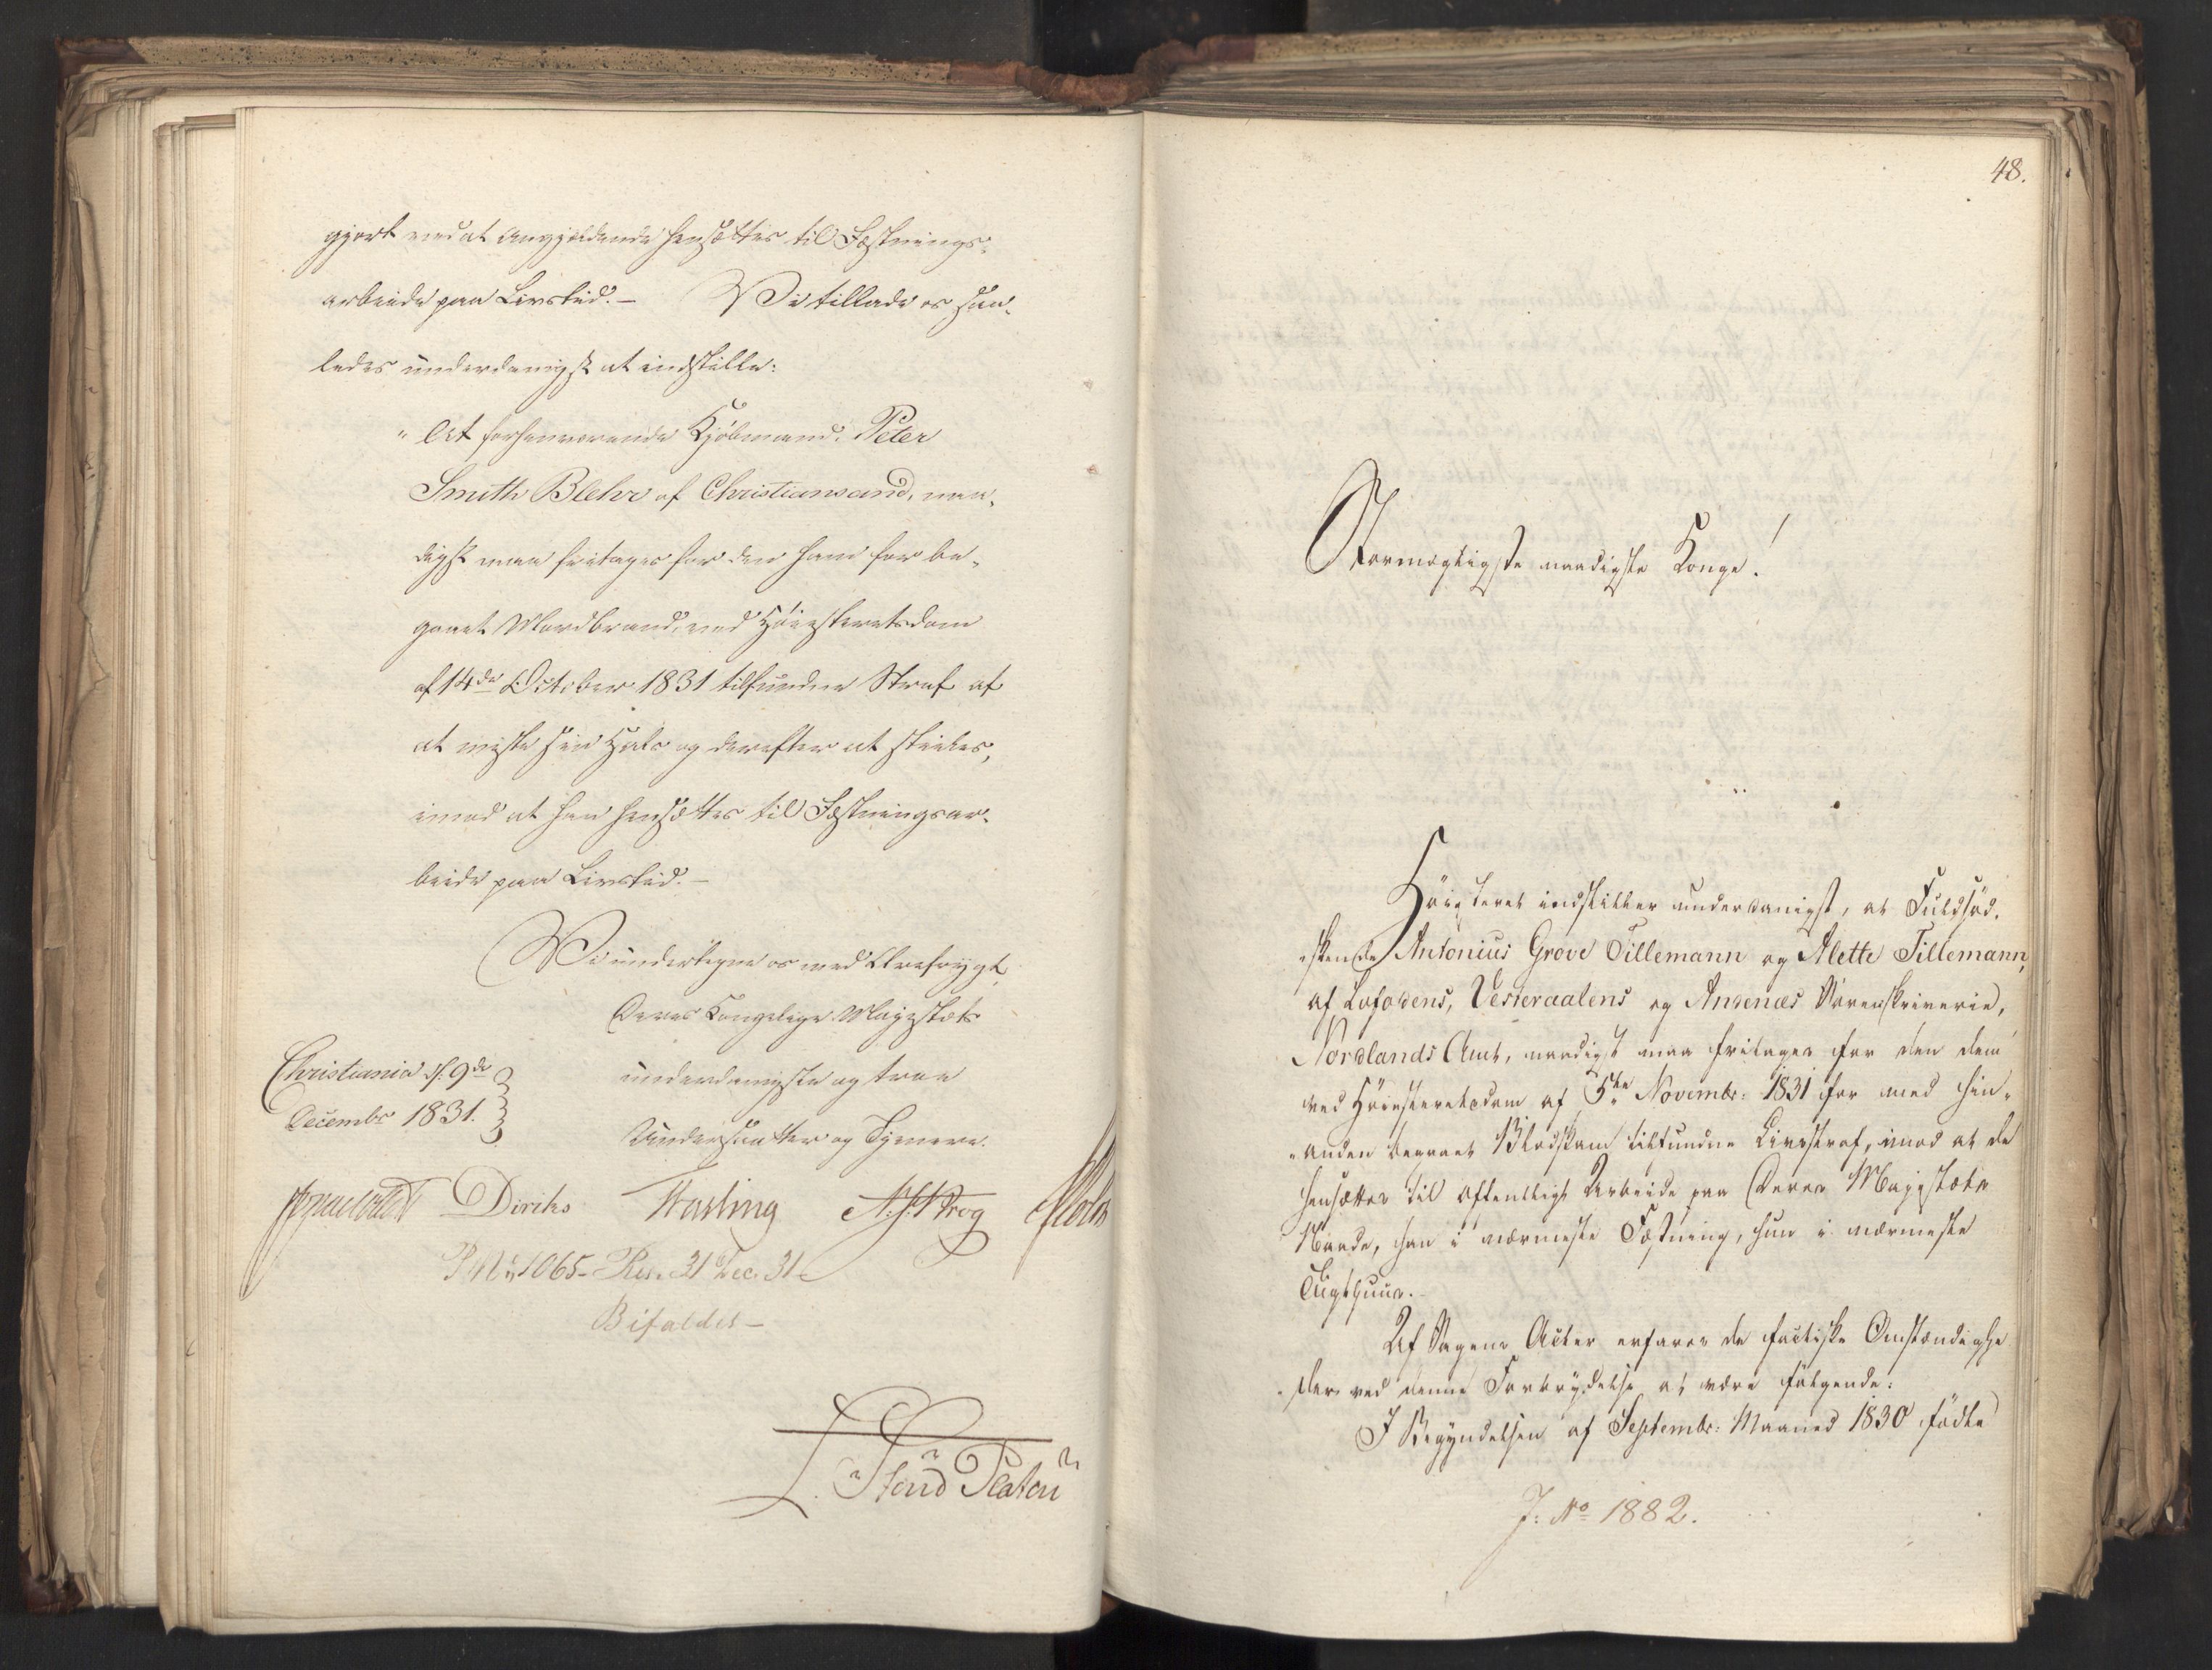 gjort ved at Angjeldende hensættes til Fæstnings-
arbeide paa Livstid. – Vi tillade os saa-
ledes underdanigst at indstille:
"At forhenværende Kjöbmand Peter
Smith Blehr af Christiansand, naa-
digst maa fritages for den ham for be-
gaaet Mordbrand, ved Höiesteretsdom
af 14de October 1831 tilfundne Straf af
at miste sin Hals og derefter at steiles,
imod at han hensættes til Fæstningsar-
beide paa Livstid. –
Vi undertegne os med Ærefrygt,
Deres Kongelige Majestæts
Christiania d. 9de
Decembr 1831.
underdanigste og troe
Undersaatter og Tjenere.
Diriks Hasling Krog
P M No 1065 – Res. 31 Dec. 31 –
Bifaldet –
L. Stoud Platou
48.
Stormægtigste naadigste Konge!
Höiesteret indstiller underdanigst, at Fuldsöd-
skende Antonius Grove Tillemann og Alette Tillemann,
af Lofodens, Vesteraalens og Andenæs Sorenskriverie,
Nordlands Amt, naadigst maa fritages for den dem
ved Höiesteretsdom af 5te Novembr: 1831 for med hin-
anden begaaet Blodskam tilfundne Livsstraf, imod at de
hensættes til offentligt Arbeide paa Deres Majestæts
Naade, han i nærmeste Fæstning, hun i nærmeste
Tugthuus. –
Af Sagens Acter erfares de factiske Omstændighe
der ved denne Forbrydelse at være fölgende:
I Begyndelsen af Septembr: Maaned 1830 födte
J: No 1882.